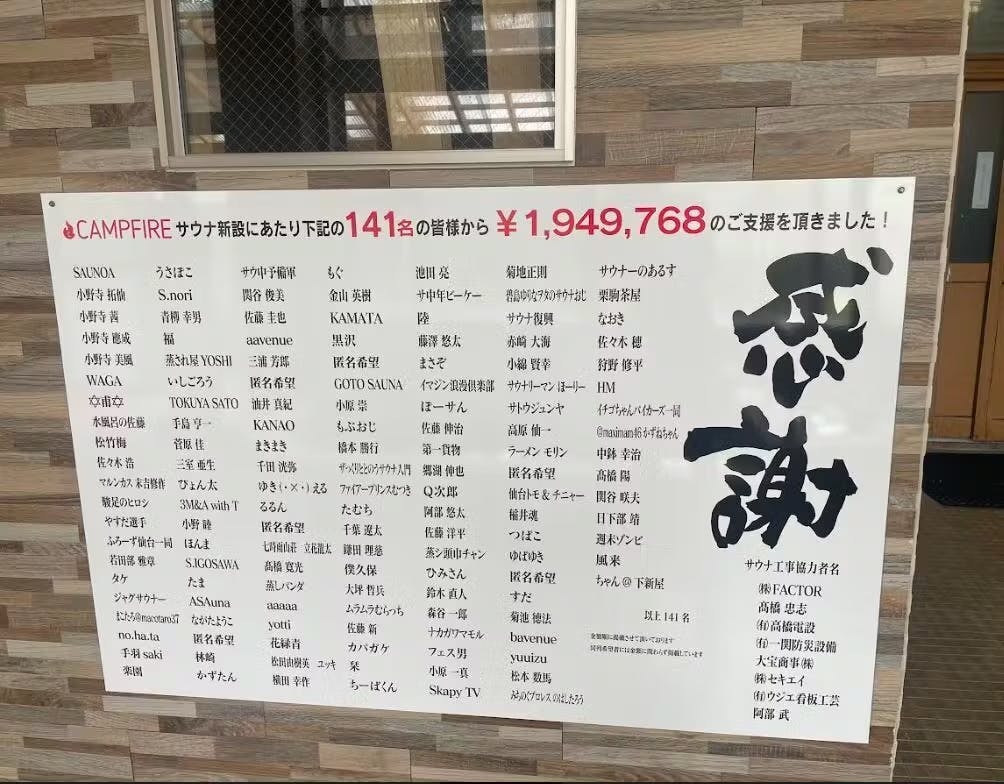 CAMPFIRE サウナ新設にあたり下記の141名の皆様から ￥1,949,768 のご支援を頂きました！
感謝
SAUNOA
小野寺 拓仙
小野寺 茜
小野寺 應成
小野寺 美風
WAGA
✡甫✡
水風呂の佐藤
松竹梅
佐々木 浩
マルンカス 末吉修作
駿足のヒロシ
やすだ選手
ふろーず仙台一同
若田部 雅章
タケ
ジャグサウナー
またたろ@macotaro37
no.ha.ta
手羽 saki
楽園
うさぽこ
S.nori
青柳 幸男
福
蒸され屋 YOSHI
いしごろう
TOKUYA SATO
手島 亨一
菅原 佳
三室 亜生
ぴょん太
3M&A with T
小野 睦
ほんま
S.IGOSAWA
たま
ASAuna
ながたようこ
匿名希望
林崎
かずたん
サウ中予備軍
関谷 俊美
佐藤 圭也
aavenue
三浦 芳郎
匿名希望
油井 真紀
KANAO
まきまき
千田 洸弥
ゆき(・×・)える
るるん
匿名希望
七時雨山荘 立花龍太
髙橋 寛光
蒸しパンダ
aaaaa
yotti
花緑青
松田由樹英 ユッキ
横田 幸作
もぐ
金山 英樹
KAMATA
黒沢
匿名希望
GOTO SAUNA
小原 崇
もぶおじ
橋本 勝行
ざっくりととのうサウナ入門
ファイアープリンスむつき
たむち
千葉 遼太
鎌田 理慈
僕久保
大坪 哲兵
ムラムラむらっち
佐藤 新
カバガケ
栞
ちーばくん
池田 亮
サ中年ビーケー
陸
藤澤 悠太
まさぞ
イマジン浪漫倶楽部
ぽーさん
佐藤 伸治
第一貨物
郷湖 伸也
Q次郎
阿部 悠太
佐藤 洋平
蒸シ頭巾チャン
ひみさん
鈴木 直人
森谷 一郎
ナカガワマモル
フェス男
小原 一真
Skapy TV
菊地正則
碧島ゆりなヲタのサウナおじ
サウナ復興
赤崎 大海
小綿 賢幸
サウナリーマン ほーリー
サトウジュンヤ
高原 仙一
ラーメン モリン
匿名希望
仙台トモ & チニャー
稲井魂
つばこ
ゆばゆき
匿名希望
すだ
菊池 徳法
bavenue
yuuizu
松本 数馬
みちのくプロレス のはしたろう
サウナーのあるす
栗駒茶屋
なおき
佐々木 穂
狩野 修平
HM
イチゴちゃんバイカーズ一同
@maximam46 かずねちゃん
中鉢 幸治
髙橋 陽
関谷 咲夫
日下部 靖
週末ゾンビ
風来
ちゃん@下新屋
以上 141 名
金額順に掲載させて頂いております
同列希望者には金額に関わらず掲載しています
サウナ工事協力者名
㈱FACTOR
髙橋 忠志
㈲高橋電設
㈲一関防災設備
大宝商事㈱
㈱セキエイ
㈲ウジエ看板工芸
阿部 武